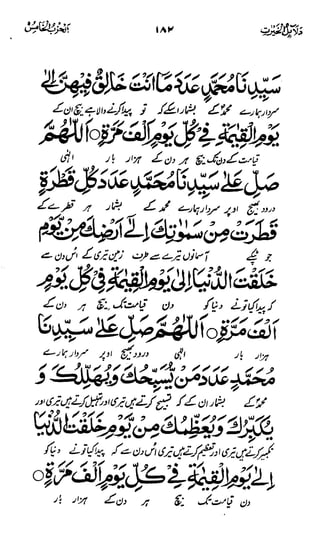 دلائل الخيرات ١٨٢ الحزب الخامس
سَيِّدِنَا مُحَمَّدٍ عَدَدَ مَا اَنْتَ خَالِقٌ فِيْهِنَّ اِلٰى
سردار ہمارے محمدؐ کے بشمار اسکے کہ تو پیدا کرنے والا ہے بیچ ان کے
يَوْمِ الْقِيٰمَةِ فِيْ كُلِّ يَوْمٍ اَلْفَ مَرَّةٍ ○ اَللّٰهُمَّ
قیامت کے دن تک بیچ ہر دن کے ہزار بار الٰہی
صَلِّ عَلٰى سَيِّدِنَا مُحَمَّدٍ عَدَدَ كُلِّ قَطْرَةٍ
درود بھیج اوپر سردار ہمارے محمد کے بشمار ہر قطرے کے
قَطَرَتْ مِنْ سَمٰوٰتِكَ اِلٰى اَرْضِكَ مِنْ يَّوْمِ
جو ٹپکے آسمانوں تیرے سے طرف زمین تیری کے اس دن سے
خَلَقْتَ الدُّنْيَا اِلٰى يَوْمِ الْقِيٰمَةِ فِيْ كُلِّ يَوْمٍ
کہ پیدا کیا تونے دنیا کو دن قیامت تک بیچ ہر دن کے
اَلْفَ مَرَّةٍ ○ اَللّٰهُمَّ صَلِّ عَلٰى سَيِّدِنَا
ہزار بار الٰہی درود بھیج اوپر سردار ہمارے
مُحَمَّدٍ عَدَدَ مَنْ يُّسَبِّحُكَ وَ يُهَلِّلُكَ وَ
محمدؐ کے بشمار ان کے کہ تسبیح کرتے ہیں تیری اور تہلیل کرتے ہیں تیری اور
يُكَبِّرُكَ وَ يُعَظِّمُكَ مِنْ يَّوْمِ خَلَقْتَ الدُّنْيَا
تکبیر کرتے ہیں تیری اور تعظیم کرتے ہیں تیری اس دن سے کہ پیدا کیا تونے دنیا کو
اِلٰى يَوْمِ الْقِيٰمَةِ فِيْ كُلِّ يَوْمٍ اَلْفَ مَرَّةٍ ○
دن قیامت تک بیچ ہر دن کے ہزار بار